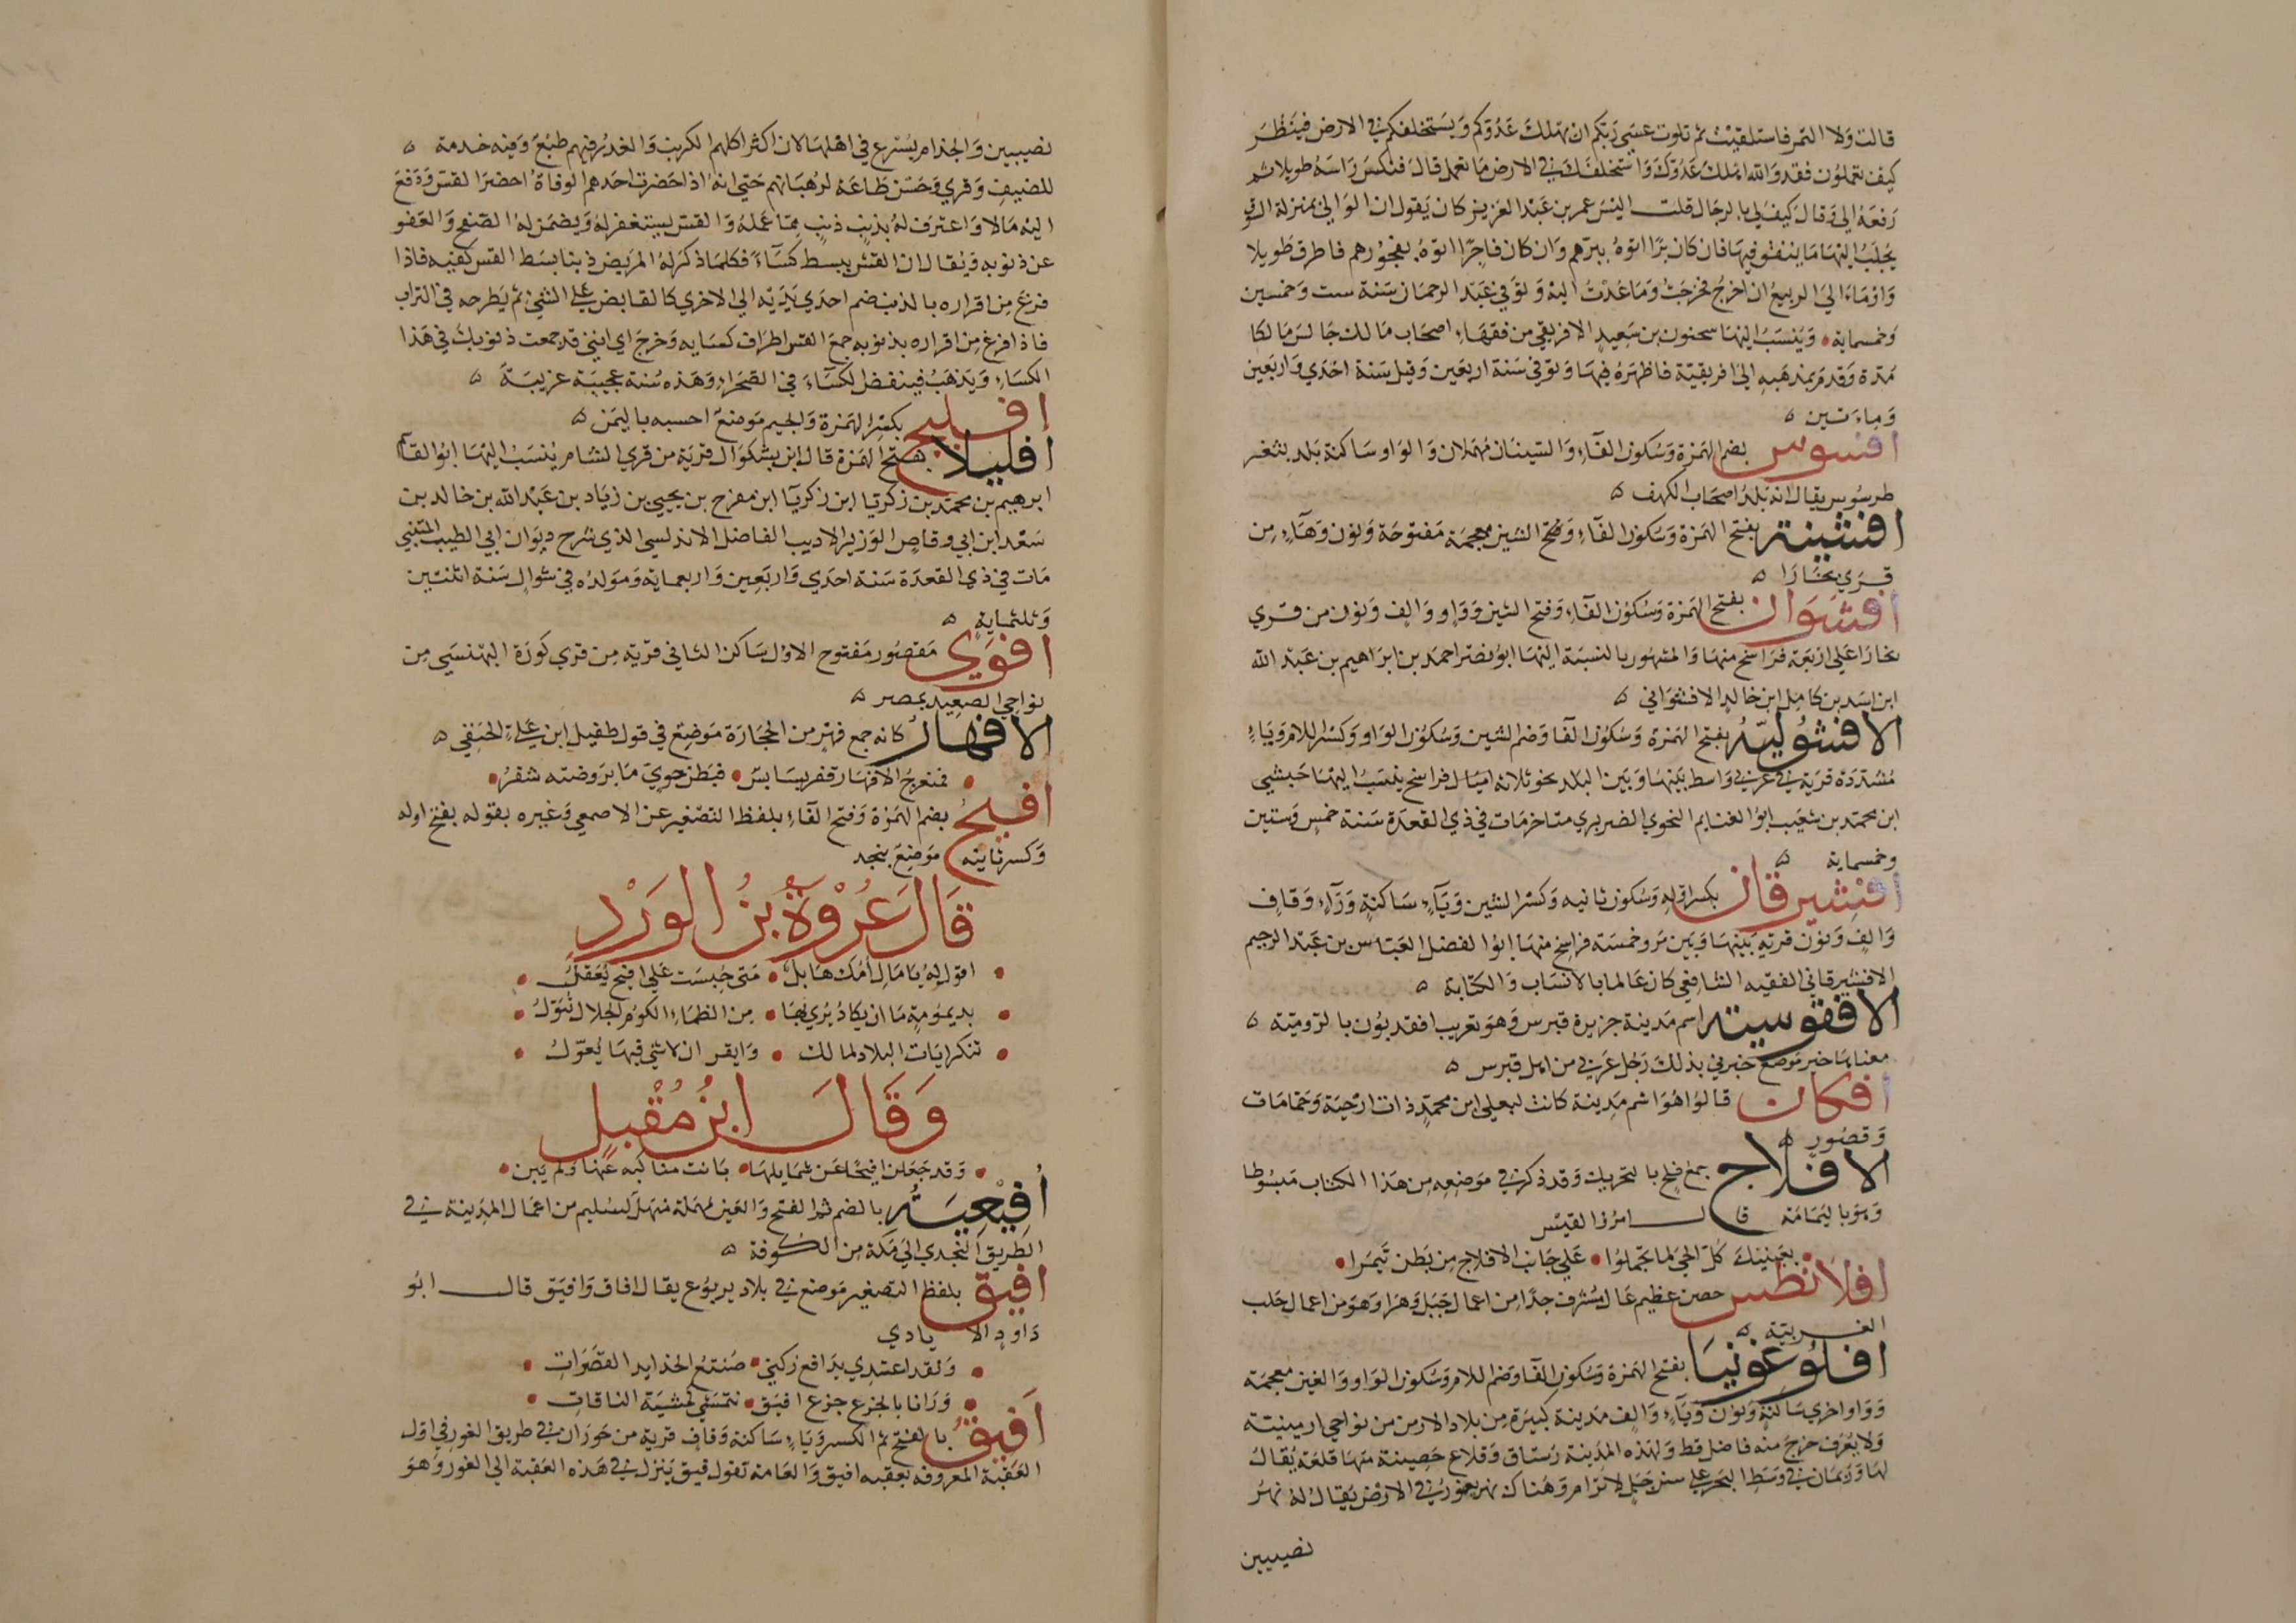 قالت ولا التمر فاستلقيت ثم تلوت عسى ربكم ان يهلك عدوكم ويستخلفكم في الارض فينظر
كيف تعملون فقد والله اهلك عدوك واستخلفك في الارض ما تعمل قال فنكس راسه طويلا ثم
رفعه الي وقال كيف لي بالرجال قلت اليس عمر بن عبد العزيز كان يقول ان الوالي بمنزلة السوق
يجلب اليها ما ينفق فيها فان كان برا اتوه ببرهم وان كان فاجرا اتوه بفجورهم فاطرق طويلا
واومأ الي الربيع ان اخرج فخرجت وما عدت اليه وتوفي عبد الرحمان سنة ست وخمسين
وخمسماية وينسب اليها سحنون بن سعيد الافريقي من فقهاء اصحاب مالك جالس مالكا
مدة وقدم بمذهبه الى افريقية فاظهره فيها وتوفي سنة اربعين وقيل سنة احدي واربعين
وماءتين
افسوس بضم الهمزة وسكون الفاء والسينان مهملان والواو ساكنة بلد بثغر
طرسوس يقال انه بلد اصحاب الكهف
افشينة بفتح الهمزة وسكون الفاء وفتح الشين معجمة مفتوحة ونون وهاء من
قري بخارا
افشوان بفتح الهمزة وسكون الفاء وفتح الشين وواو والف ونون من قري
بخارا علي اربعة فراسخ منها والمشهور بالنسبة اليها ابو نصر احمد بن ابراهيم بن عبد الله
ابن اسد بن كامل ابن خالد الافشواني
الافشولية بفتح الهمزة وسكون الفا وضم الشين وسكون الواو وكسر اللام وياء
مشددة قرية في غربي واسط بينها وبين البلد نحو ثلاثة اميال فراسخ ينسب اليها حبشي
ابن محمد بن شعيب ابو الغنايم النحوي الضرير متاخر مات في ذي القعدة سنة خمس وستين
وخمسماية
افشيرقان بكسر اوله وسكون ثانيه وكسر الشين وياء ساكنة وراء وقاف
والف ونون قرية بينها وبين مرو خمسة فراسخ منها ابو الفضل العباس بن عبد الرحيم
الافشيرقاني الفقيه الشافعي كان عالما بالانساب والكتابة
الافقوسية اسم مدينة جزيرة قبرس وهو تعريب افقديون بالرومية
معناها خبر موضع خبرني بذلك رجل عربي من اهل قبرس
افكان قالوا هو اسم مدينة كانت ليعلي ابن محمد ذات ارحية وحمامات
وقصور
الافلاج جمع فلج بالتحريك وقد ذكر في موضعه من هذا الكتاب مبسوطا
وهو باليمامة قال امرؤ القيس
بعينيك كل الحي لما تحملوا علي جانب الافلاج من بطن تيمرا
افلانطس حصن عظيم عال مشرف جدا من اعمال جبل وهرا وهو من اعمال حلب
الغربية
افلوغونيا بفتح الهمزة وسكون الفا وضم اللام وسكون الواو والغين معجمة
وواو اخري ساكنة ونون وياء والف مدينة كبيرة من بلاد الارمن من نواحي ارمينية
ولا يعرف خرج منه فاضل قط ولهذه المدينة رستاق وقلاع حصينة منها قلعة يقال
لها وريمان في وسط البحر علي سن جبل لا ترام وهناك نهر يغور في الارض يقال له نهر
نصيبين
نصيبين والجذام يسرع في اهلها لان اكثر اكلهم الكرنب والغدر فيهم طبع وفيه خدمة
للضيف وقري وحسن طاعة لرهبانهم حتي انه اذا حضرت احدهم الوفاة احضر القس ودفع
اليه مالا واعترف له بذنب ذنب مما عمله والقس يستغفر له ويضمن له الصفح والعفو
عن ذنوبه ويقال ان القس يبسط كساء فكلما ذكر له المريض ذنبا بسط القس كفيه فاذا
فرغ من اقراره بالذنب ضم احدي يديه الى الاخري كالقابض علي الشي ثم يطرحه في التراب
فاذا فرغ من اقراره بذنوبه جمع القس اطراف كسايه وخرج اي انني قد جمعت ذنوبك في هذا
الكساء ويذهب فينفض الكساء في الصحراء وهذه سنة عجيبة غريبة
افليج بكسر الهمزة والجيم موضع احسبه باليمن
افليلا بفتح الهمزة قال ابن بشكوال قرية من قري الشام ينسب اليها ابو القا
ابرهيم بن محمد بن زكريا ابن زكريا ابن مفرح بن يحيي بن زياد بن عبد الله بن خالد بن
سعد ابن ابي وقاص الوزير الاديب الفاضل الاندلسي الذي شرح ديوان ابي الطيب المتنبي
مات في ذي القعدة سنة احدي واربعين واربعماية ومولده في شوال سنة اثنتين
وثلثماية
افوي مقصور مفتوح الاول ساكن الثاني قرية من قري كورة البهنسي من
نواحي الصعيد بمصر
الافهار كانه جمع فهر من الحجارة موضع في قول طفيل ابن علي الحنفي
فمنعرج الافهار قفر بسابس فبطن حوي ما بروضته شفر
افيح بضم الهمزة وفتح الفاء بلفظ التصغير عن الاصمعي وغيره بقوله بفتح اوله
وكسر ثانيه موضع بنجد
قال عروة بن الورد
اقول له يا مال امك هابل متي حبست علي افيح تعقل
بديمومة ما ان يكاد يري بها من الظماء الكوم الجلال تبول
تنكر ايات البلاد لمالك وايقن ان لا شي فيها يعول
وقال ابن مقبل
وقد جعلن افيحا عن شمايلها بانت مناكبه عنها ولم يبن
أفيعية بالضم ثم الفتح والعين مهملة منهل لسليم من اعمال المدينة في
الطريق النجدي الي مكة من الكوفة
افيق بلفظ التصغير موضع في بلاد يربوع يقال افاق وافيق قال ابو
داود الايادي
ولقد اغتدي يدافع ركني صنتع الخد ايد القصرات
وارانا بالجزع جزع افيق نتمشي كمشية الناقات
أفيق بالفتح ثم الكسر وياء ساكنة وقاف قرية من حوران في طريق الغور في اول
العقبة المعروفة بعقبه افيق والعامة تقول فيق ينزل في هذه العقبة الي الغور وهو